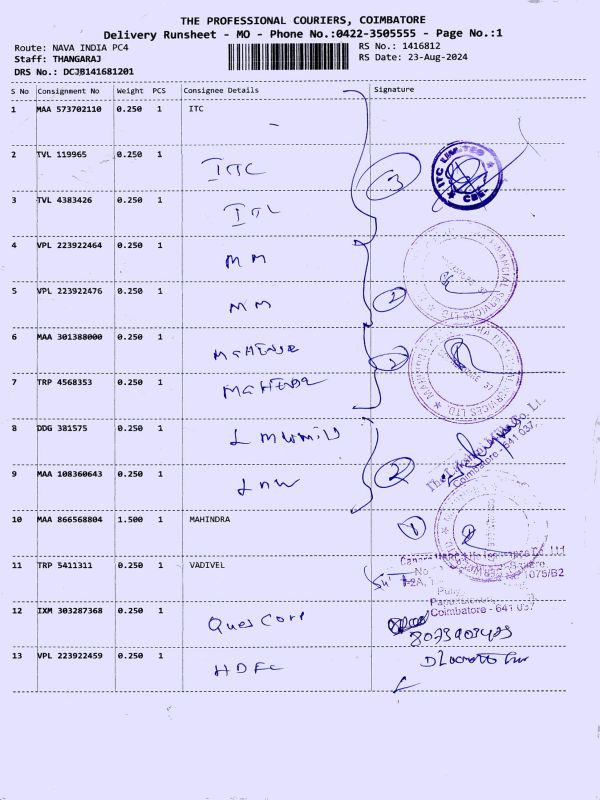 THE PROFESSIONAL COURIERS, COIMBATORE
Delivery Runsheet - MO - Phone No.:0422-3505555 - Page No.:1
Route: NAVA INDIA PC4 RS No.: 1416812
Staff: THANGARAJ RS Date: 23-Aug-2024
DRS No.: DCJB141681201
S No Consignment No Weight PCS Consignee Details Signature
1 MAA 573702110 0.250 1 ITC
2 TVL 119965 0.250 1 ITC
3 ITC LIMITED CBE
3 TVL 4383426 0.250 1 ITC
4 VPL 223922464 0.250 1 MM
5 VPL 223922476 0.250 1 MM
2
6 MAA 301388000 0.250 1
7 TRP 4568353 0.250 1
FINANCIAL SERVICES LTD
8 DDG 381575 0.250 1
Coimbatore - 641 037.
9 MAA 108360643 0.250 1
2
10 MAA 866568804 1.500 1 MAHINDRA
1
11 TRP 5411311 0.250 1 VADIVEL
1075/B2
Coimbatore - 641 037
12 IXM 303287368 0.250 1 Ques Corp
13 VPL 223922459 0.250 1 HDFC